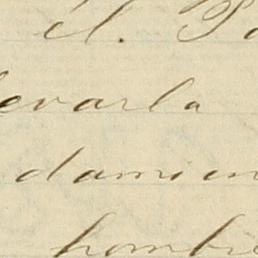 el. Pa
levarla
damien
hombre